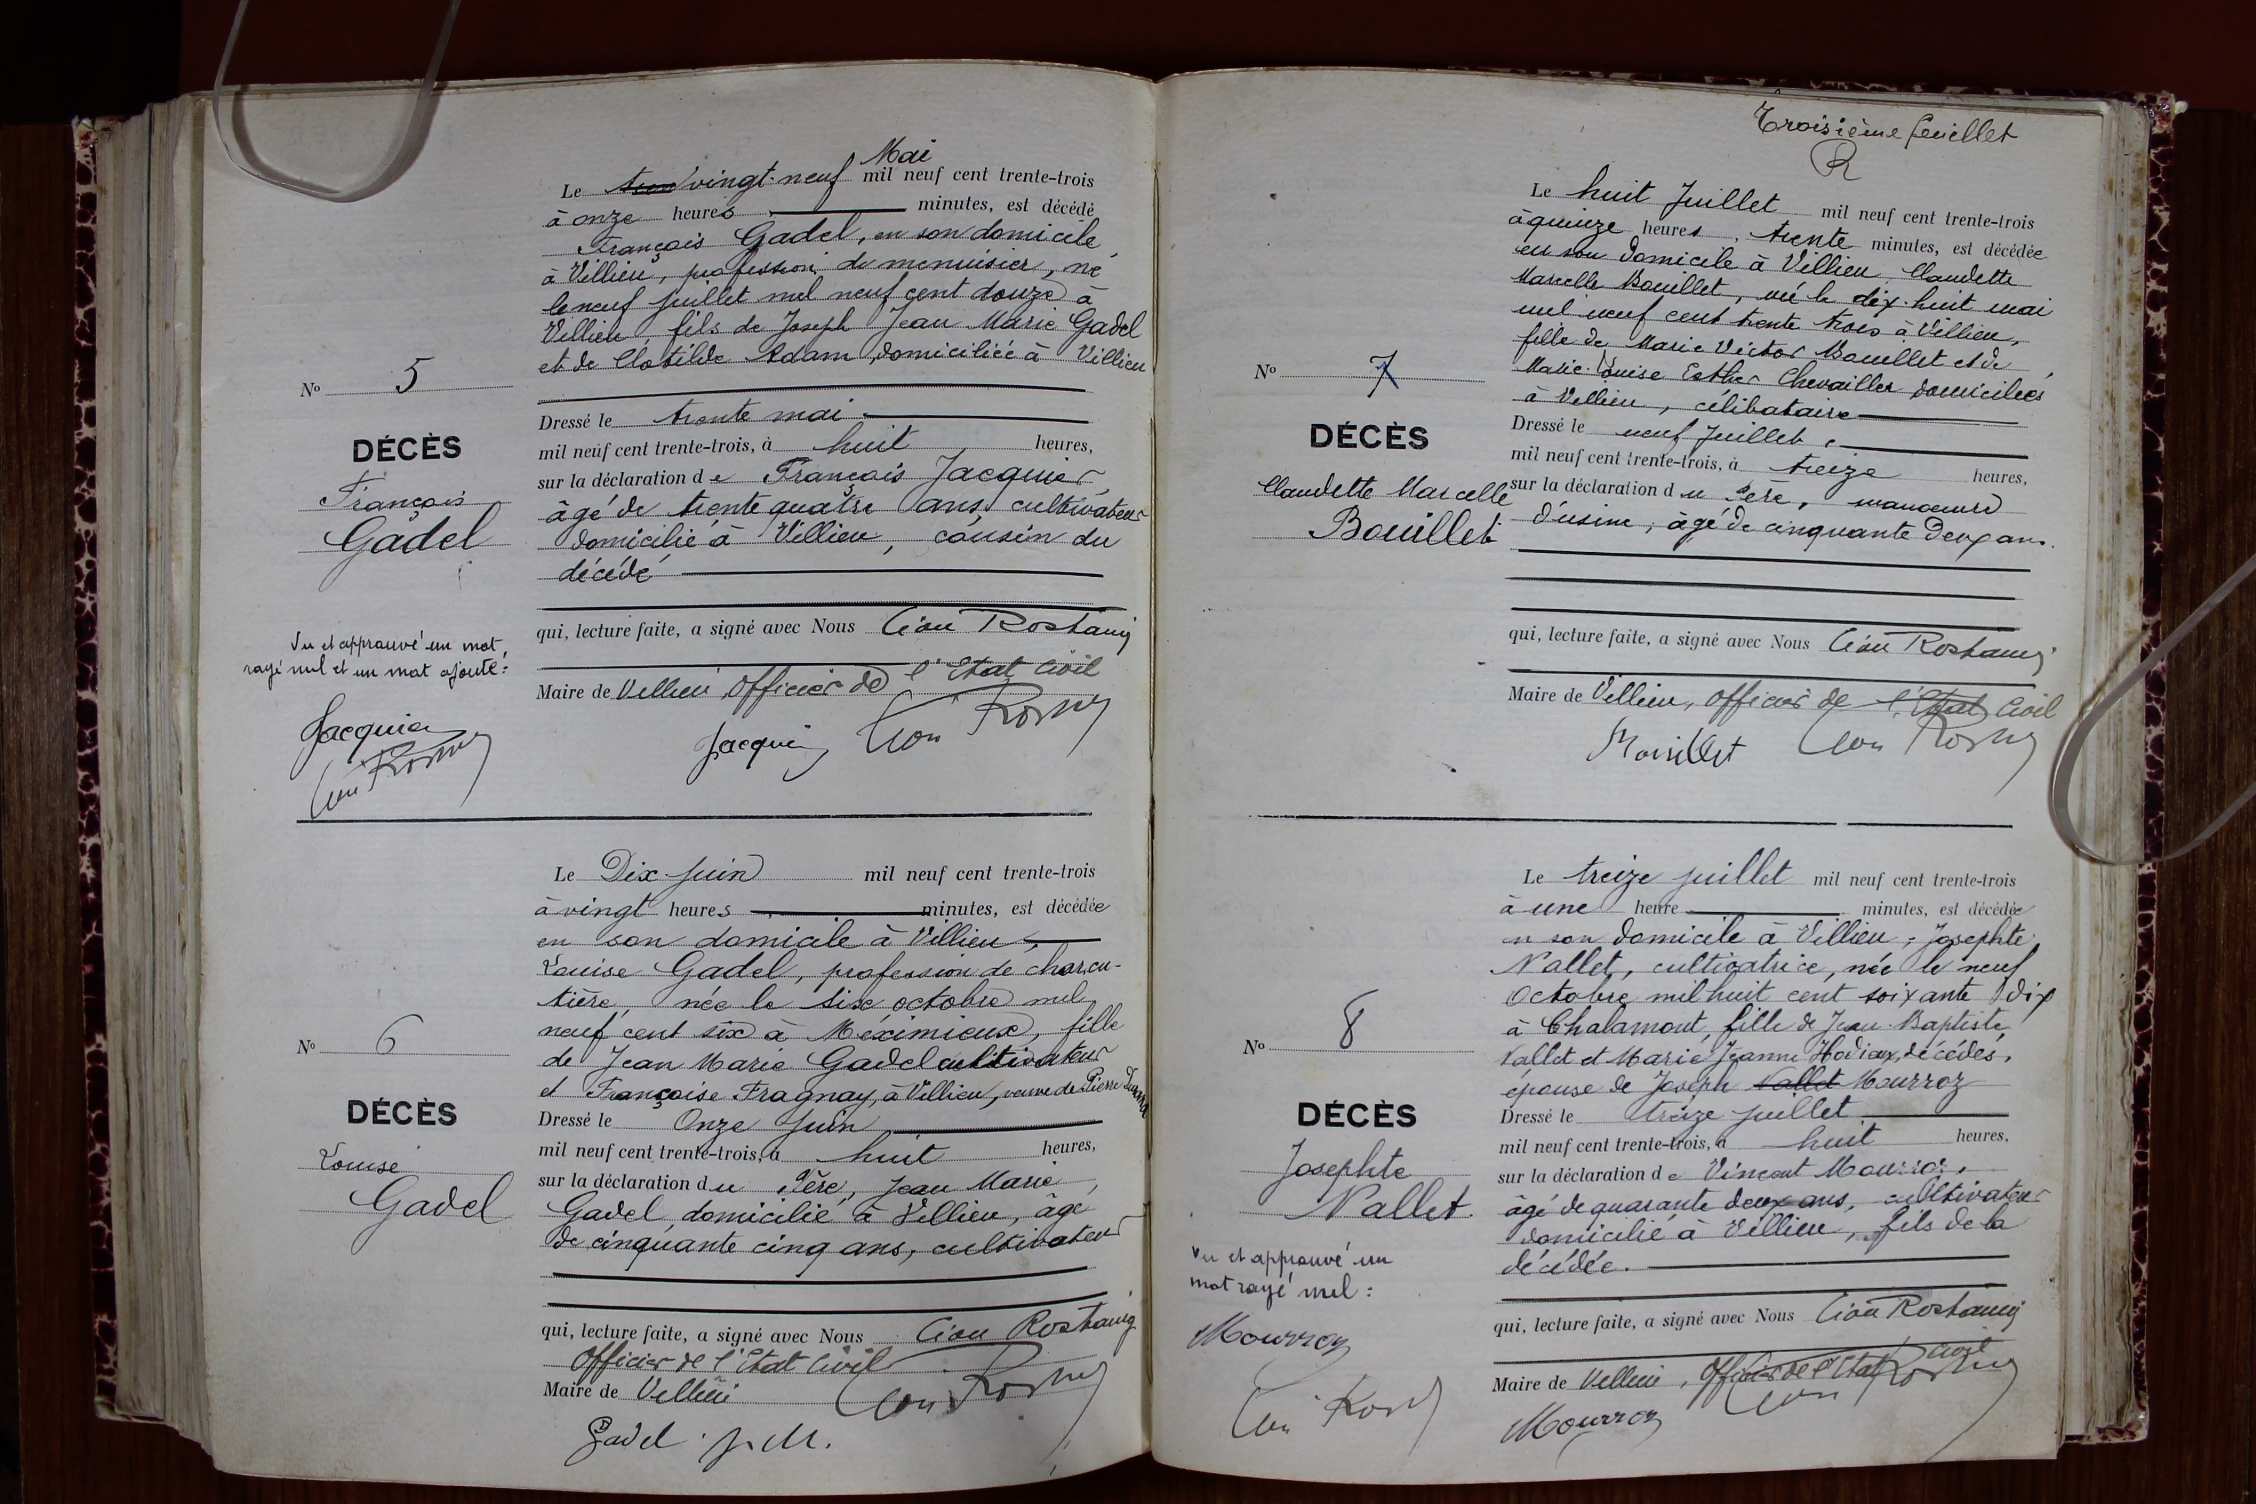 Mai
Le vingt-neuf mil neuf cent trente-trois
à onze heures, minutes, est décédé
François Gadel, en son domicile
à Villieu, profession de menuisier, né
le neuf juillet mil neuf cent douze à
Villieu, fils de Joseph Jean Marie Gadel
et de Clotilde Adam, domiciliée à Villieu
No 5
DÉCÈS
François
Gadel
Dressé le trente mai
mil neuf cent trente-trois, à huit heures,
sur la déclaration de François Jacquier,
âgé de trente quatre ans, cultivateur
domicilié à Villieu, cousin du
décédé
qui, lecture faite, a signé avec Nous Léon Rostaing
Maire de Villieu, Officier de l'Etat Civil
Vu et approuvé un mot,
rayé nul et un mot ajouté:
Jacquier
Jacquier Léon
Le Dix juin mil neuf cent trente-trois
à vingt heures minutes, est décédée
en son domicile à Villieu,
Louise Gadel, profession de charcu-
tière, née le six octobre mil
neuf cent six à Meximieux, fille
de Jean Marie Gadel cultivateur
et Françoise Fragnay, à Villieu, veuve de Pierre
No 6
DÉCÈS
Louise
Gadel
Dressé le Onze juin
mil neuf cent trente-trois, à huit heures,
sur la déclaration du Père, Jean Marie
Gadel, domicilié à Villieu, âgé
de cinquante cinq ans, cultivateur
qui, lecture faite, a signé avec Nous Léon Rostaing
Officier de l'Etat Civil
Maire de Villieu
Gadel J. M.
Troisième feuillet
R
Le huit Juillet mil neuf cent trente-trois
à quinze heures, trente minutes, est décédée
en son domicile à Villieu, Claudette
Marcelle Bouillet, née le dix-huit mai
mil neuf cent trente trois à Villieu,
fille de Marie Victor Bouillet et de
Marie-Louise Esther Chevailler domiciliés
à Villieu, célibataire
No 7
DÉCÈS
Claudette Marcelle
Bouillet
Dressé le neuf Juillet,
mil neuf cent trente-trois, à treize heures,
sur la déclaration du Père, manœuvre
d'usine, âgé de cinquante deux ans.
qui, lecture faite, a signé avec Nous Léon Rostaing
Maire de Villieu, Officier de l'Etat Civil
Bouillet Léon
Le treize juillet mil neuf cent trente-trois
à une heure minutes, est décédée
en son domicile à Villieu, Josephte
Nallet, cultivatrice, née le neuf
Octobre mil huit cent soixante dix
à Chalamont, fille de Jean-Baptiste
Nallet et Marie Jeanne Hodiaux, décédés,
épouse de Joseph Nallet Mourroz
No 8
DÉCÈS
Josephte
Nallet
Dressé le treize juillet
mil neuf cent trente-trois, à huit heures,
sur la déclaration de Vincent Mourroz,
âgé de quarante deux ans, cultivateur
domicilié à Villieu, fils de la
décédée.
qui, lecture faite, a signé avec Nous Léon Rostaing
Maire de Villieu, Officier de l'Etat Civil
Vu et approuvé un
mot rayé nul:
Mourroz
Mourroz